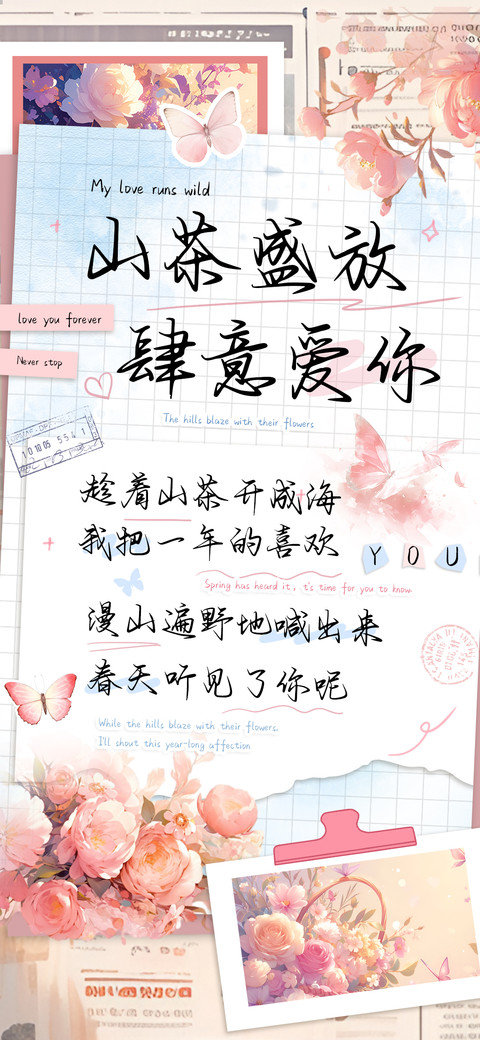 My love runs wild
山茶盛放
love you forever
肆意爱你
Never stop
The hills blaze with their flowers
趁着山茶开成海
我把一年的喜欢
Y O U
Spring has heard it, t's time for you to know
漫山遍野地喊出来
春天听见了你呢
While the hills blaze with their flowers
I'll shout this year-long affection